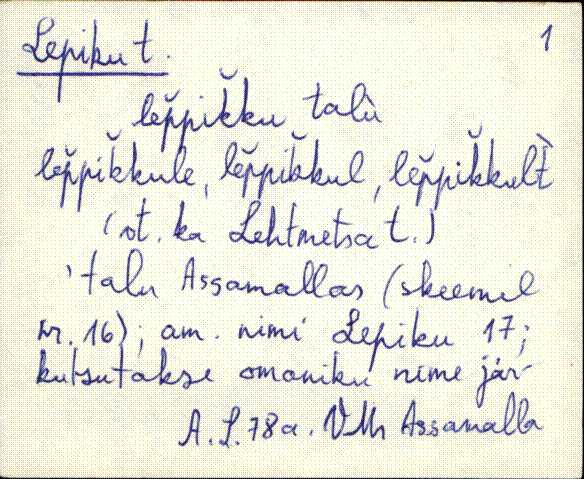 Lepiku t. 1
lep̆pik̆ku talù
lep̆pik̆kule, lep̆pik̆kul, lep̆pik̆kult̀
(vt. ka Lehtmetsa t.)
'talu Assamallas (skeemil
nr. 16); am. nimi Lepiku 17;
kutsutakse omaniku nime jär-
A. S. 78a. VMr Assamalla